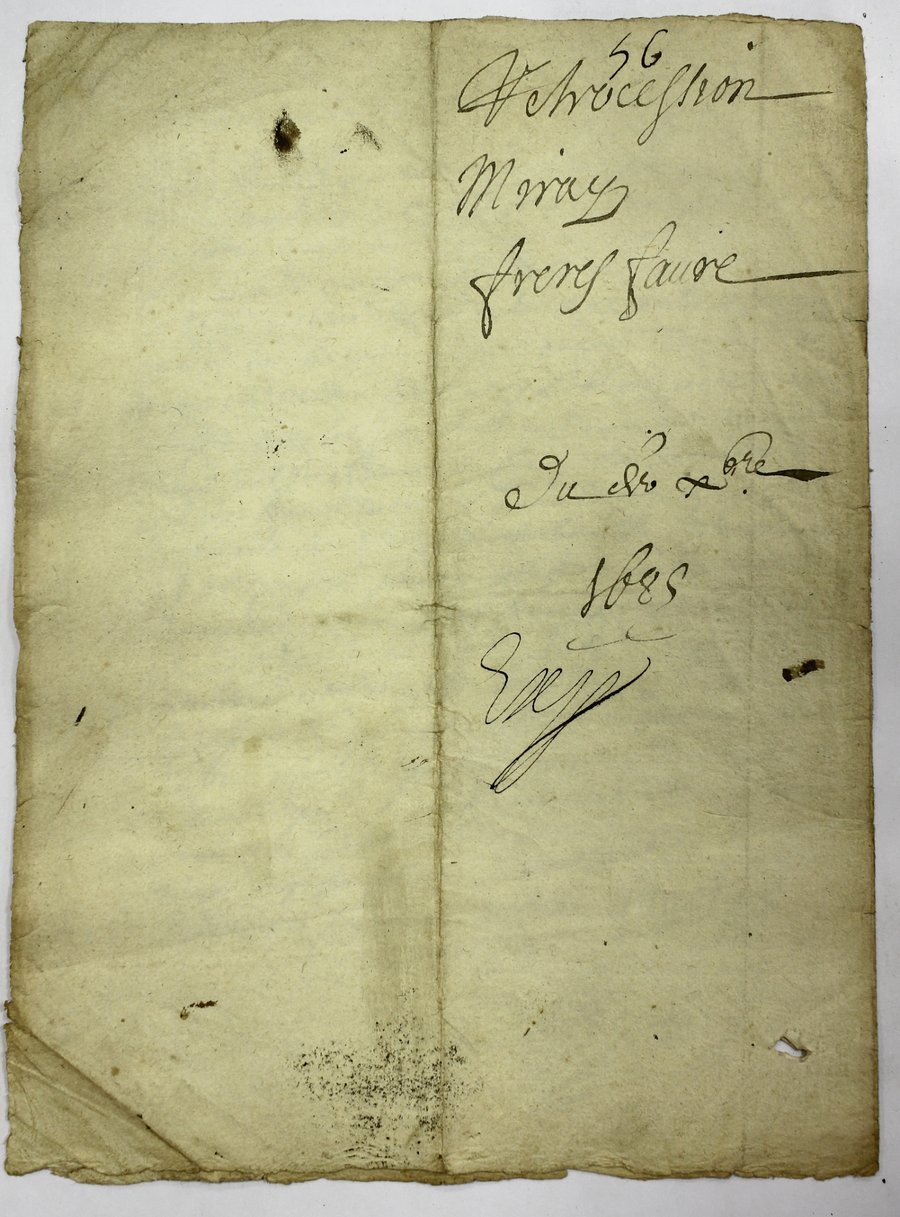 56
Retrocession
Miray
freres faure
Du xbre
1685